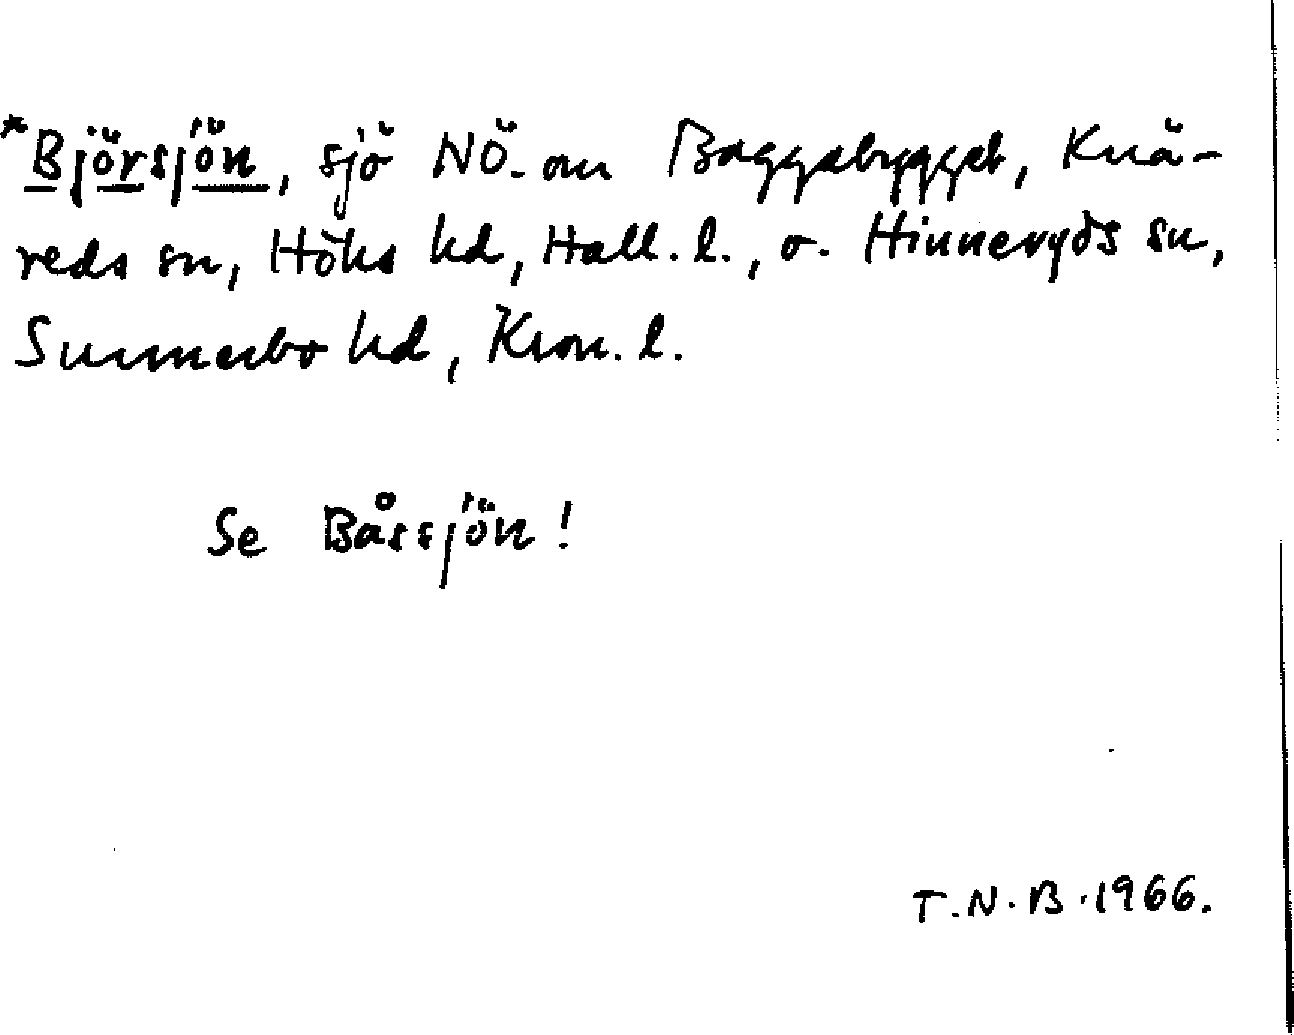 *Björsjön, sjö NÖ. om Baggabygget, Knä-
reds sn, Höks hd, Hall. l., o. Hinneryds sn,
Sunnerbo hd, Kron. l.
Se Båssjön!
T.N.B. 1966.